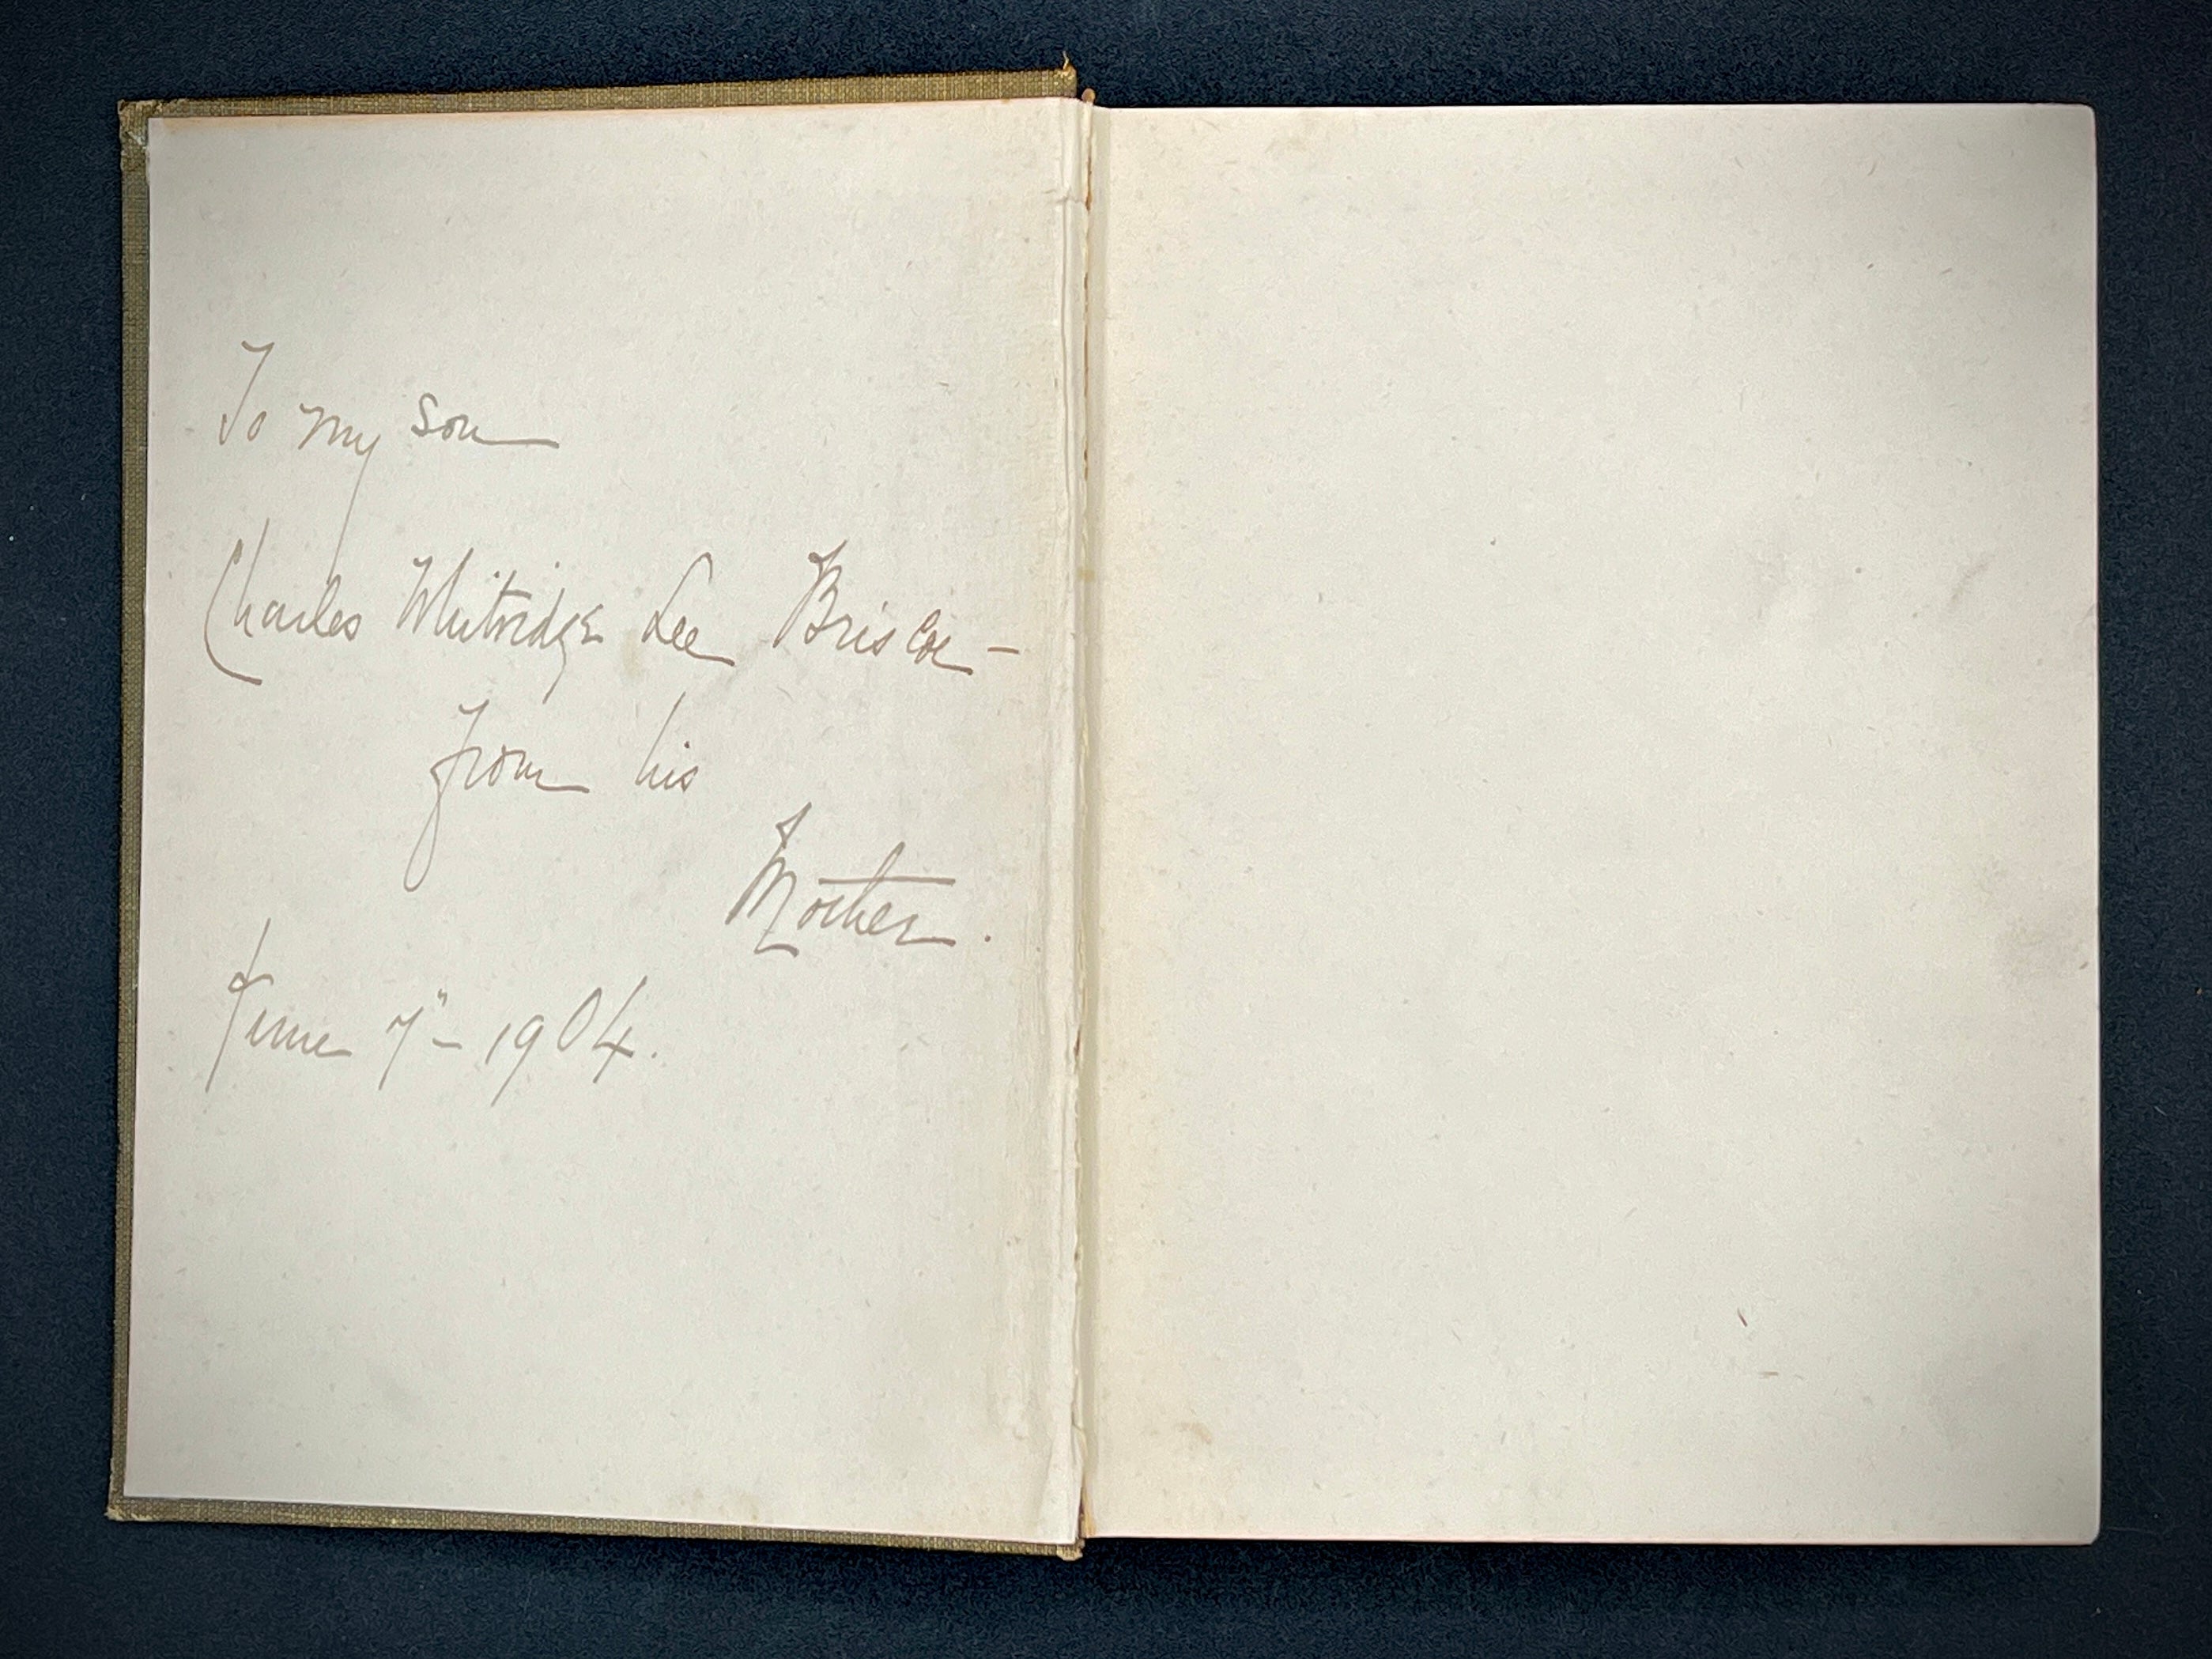 To my son
Charles Whitridge Lee Briscoe –
from his
Mother.
June 7" – 1904.